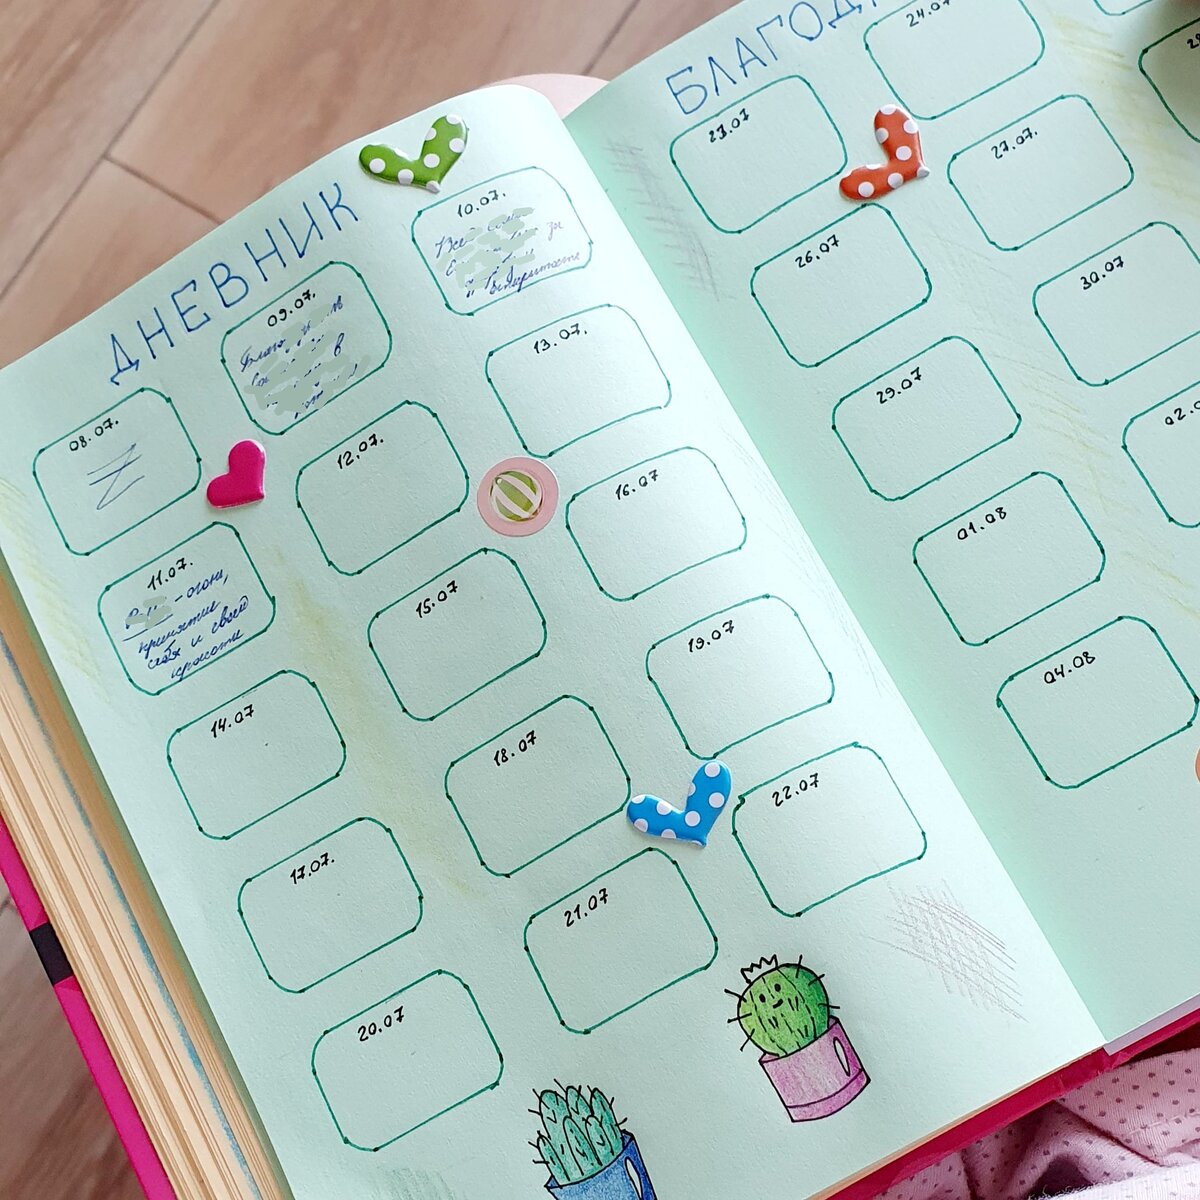 ДНЕВНИК
08.07.
Z
09.07.
в
10.07.
Все
за
11.07.
- огонь,
принятие
себя и своей
красоты
12.07.
13.07.
14.07
15.07
16.07
17.07.
18.07
19.07
20.07
21.07
22.07
БЛАГОД
23.07
24.07
26.07
27.07.
29.07
30.07
01.08
02.0
04.08